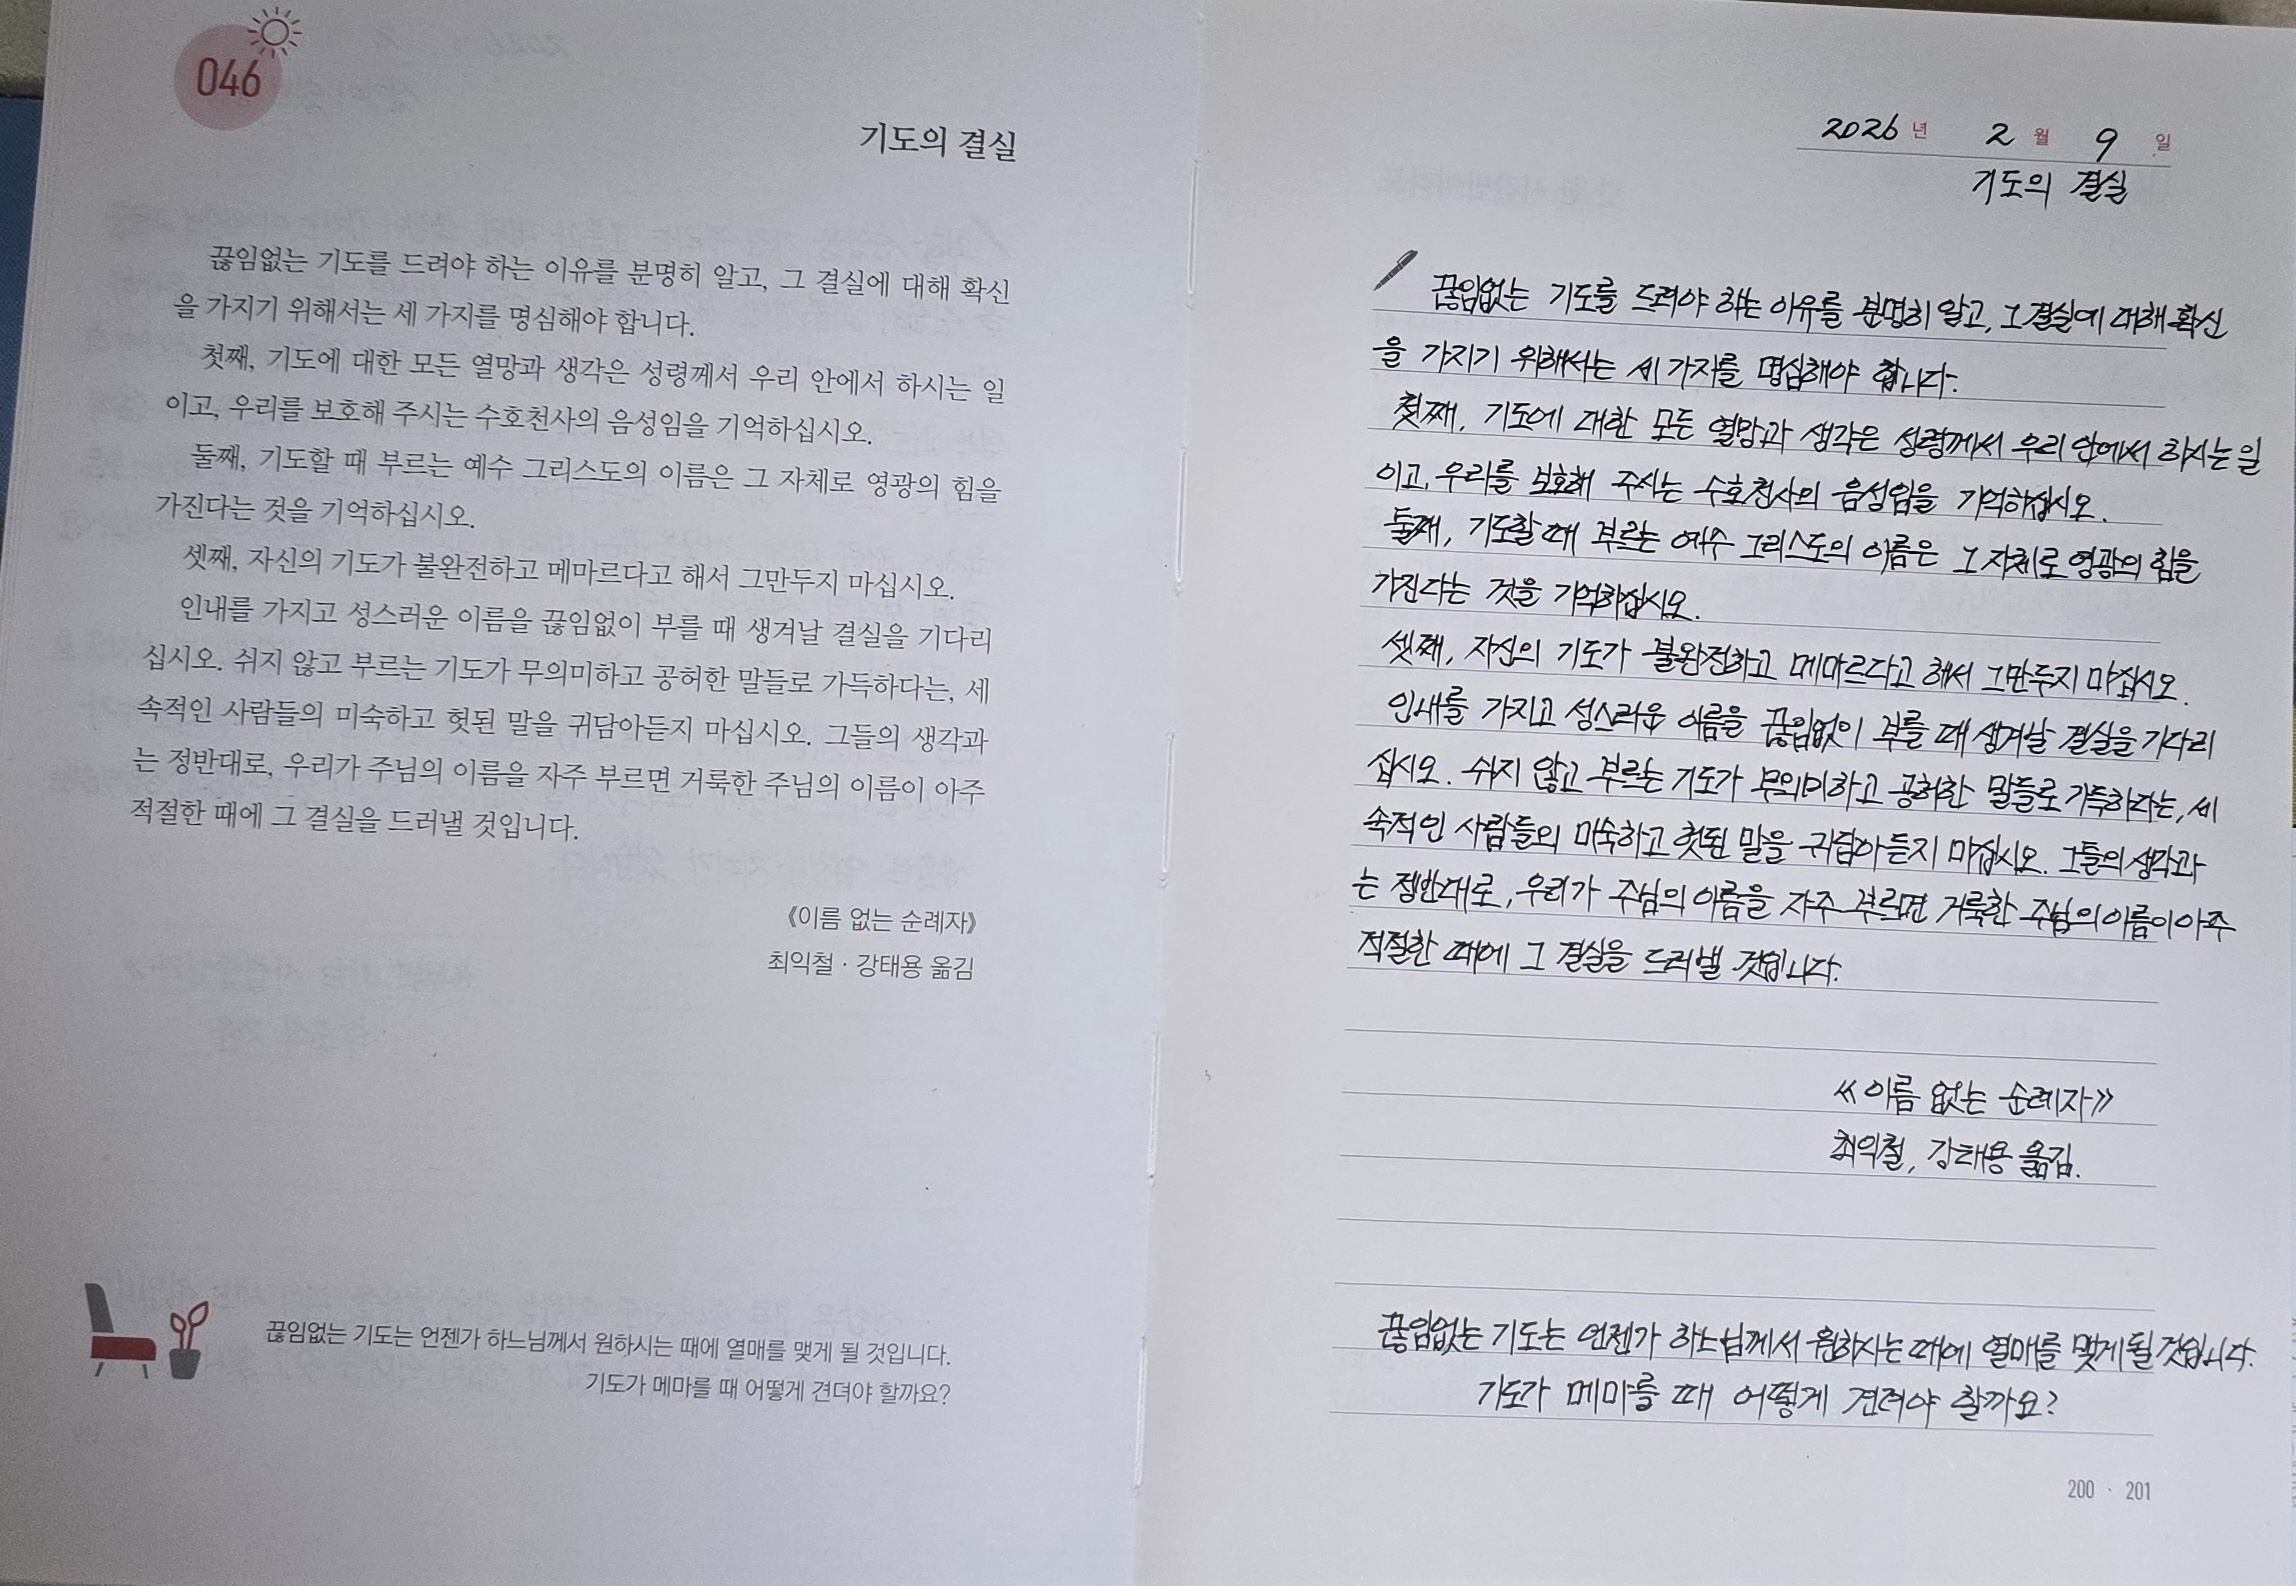 046
기도의 결실
끊임없는 기도를 드려야 하는 이유를 분명히 알고, 그 결실에 대해 확신
을 가지기 위해서는 세 가지를 명심해야 합니다.
첫째, 기도에 대한 모든 열망과 생각은 성령께서 우리 안에서 하시는 일
이고, 우리를 보호해 주시는 수호천사의 음성임을 기억하십시오.
둘째, 기도할 때 부르는 예수 그리스도의 이름은 그 자체로 영광의 힘을
가진다는 것을 기억하십시오.
셋째, 자신의 기도가 불완전하고 메마르다고 해서 그만두지 마십시오.
인내를 가지고 성스러운 이름을 끊임없이 부를 때 생겨날 결실을 기다리
십시오. 쉬지 않고 부르는 기도가 무의미하고 공허한 말들로 가득하다는, 세
속적인 사람들의 미숙하고 헛된 말을 귀담아듣지 마십시오. 그들의 생각과
는 정반대로, 우리가 주님의 이름을 자주 부르면 거룩한 주님의 이름이 아주
적절한 때에 그 결실을 드러낼 것입니다.
《이름 없는 순례자》
최익철 · 강태용 옮김
끊임없는 기도는 언젠가 하느님께서 원하시는 때에 열매를 맺게 될 것입니다.
기도가 메마를 때 어떻게 견뎌야 할까요?
2026 년 2 월 9 일
기도의 결실
끊임없는 기도를 드려야 하는 이유를 분명히 알고, 그 결실에 대해 확신
을 가지기 위해서는 세 가지를 명심해야 합니다.
첫째, 기도에 대한 모든 열망과 생각은 성령께서 우리 안에서 하시는 일
이고, 우리를 보호해 주시는 수호천사의 음성임을 기억하십시오.
둘째, 기도할 때 부르는 예수 그리스도의 이름은 그 자체로 영광의 힘을
가진다는 것을 기억하십시오.
셋째, 자신의 기도가 불완전하고 메마르다고 해서 그만두지 마십시오.
인내를 가지고 성스러운 이름을 끊임없이 부를 때 생겨날 결실을 기다리
십시오. 쉬지 않고 부르는 기도가 무의미하고 공허한 말들로 가득하다는, 세
속적인 사람들의 미숙하고 헛된 말을 귀담아듣지 마십시오. 그들의 생각과
는 정반대로, 우리가 주님의 이름을 자주 부르면 거룩한 주님의 이름이 아주
적절한 때에 그 결실을 드러낼 것입니다.
《이름 없는 순례자》
최익철, 강태용 옮김.
끊임없는 기도는 언젠가 하느님께서 원하시는 때에 열매를 맺게 될 것입니다.
기도가 메마를 때 어떻게 견뎌야 할까요?
200 · 201